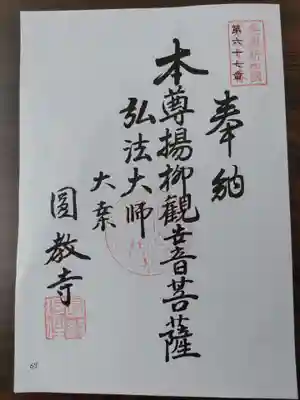 第六十七番
奉納
本尊楊柳觀世音菩薩
弘法大師
圓教寺
67